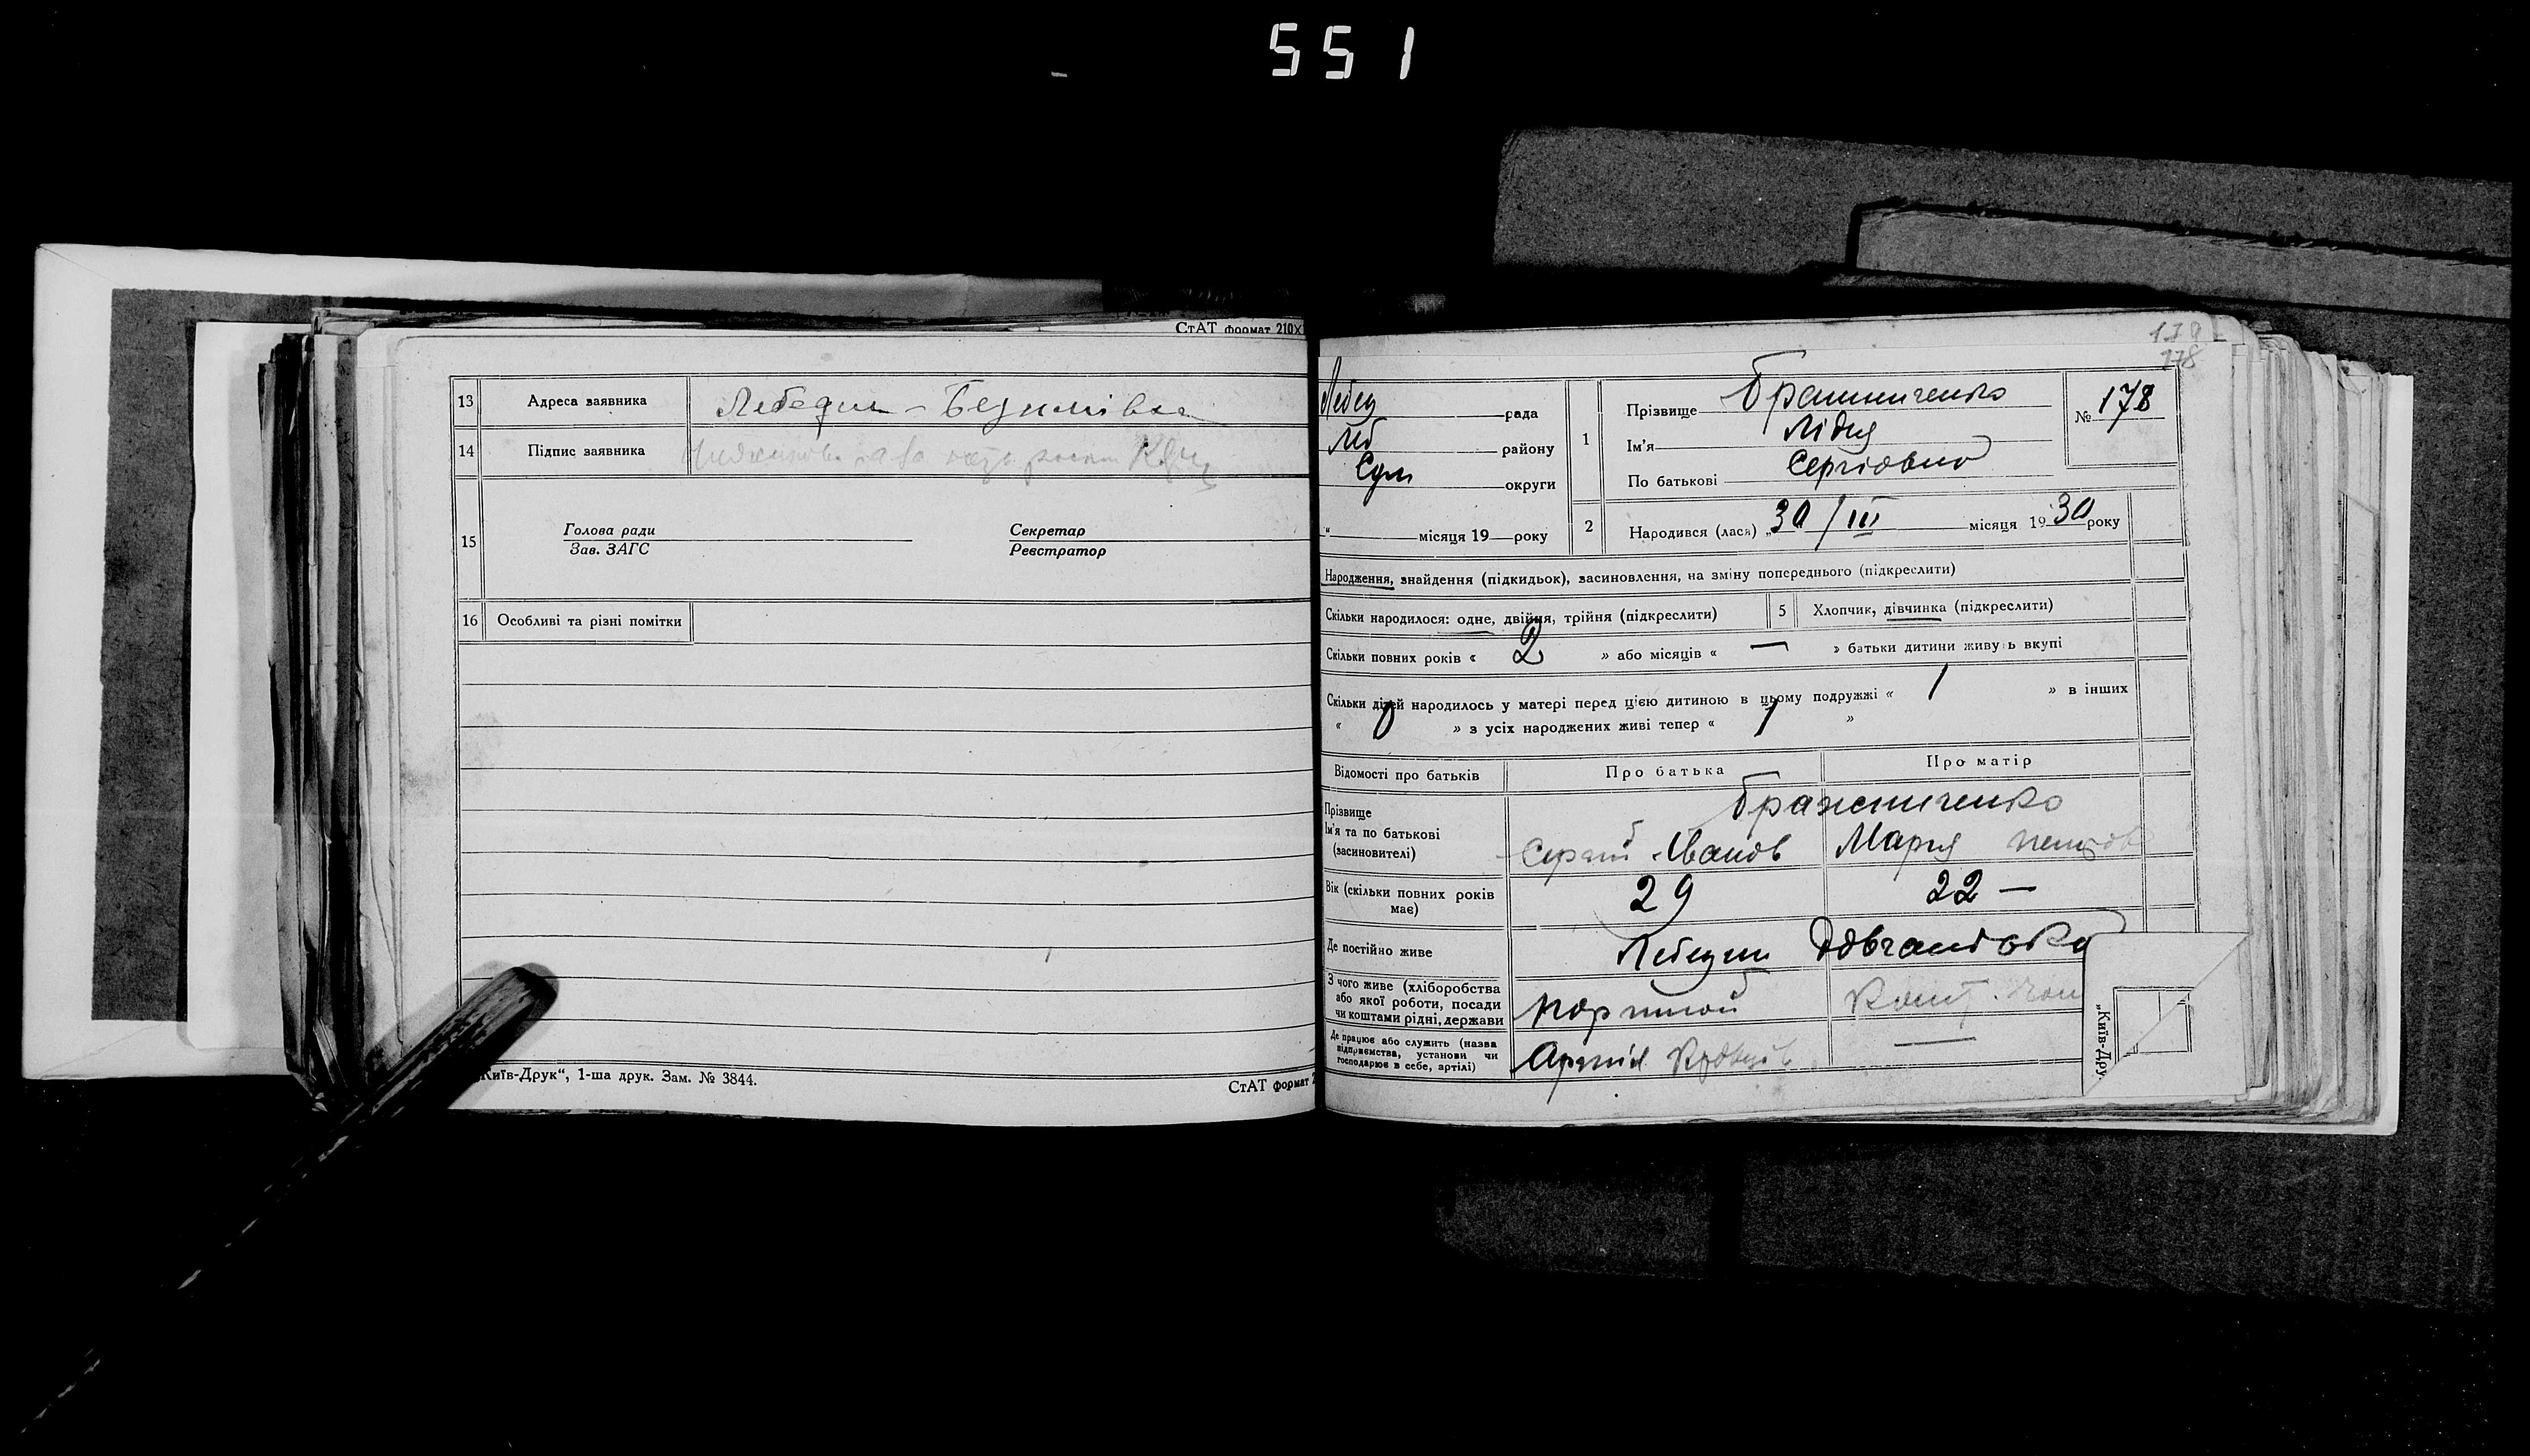 551
СтАТ формат 210×
13 Адреса заявника Лебедин – Безимівка
14 Підпис заявника
15 Голова ради Секретар
Зав. ЗАГС Реєстратор
16 Особливі та різні помітки
Київ-Друк“, 1-ша друк. Зам. № 3844.
СтАТ формат 2
178
178
Лебед рада
Леб району
Сум округи
“ місяця 19 року
1 Прізвище Бражниченко
Ім'я Лідия
По батькові Сергіовна
№ 178
2 Народився (лася) „30 / III місяця 1930 року
Народження, знайдення (підкидьок), засиновлення, на зміну попереднього (підкреслити)
Скільки народилося: одне, двійня, трійня (підкреслити) 5 Хлопчик, дівчинка (підкреслити)
Скільки повних років « 2 » або місяців « — » батьки дитини живуть вкупі
Скільки дітей народилось у матері перед цією дитиною в цьому подружжі « 1 » в інших
« 0 » з усіх народжених живі тепер « 1 »
Відомості про батьків Про батька Про матір
Прізвище Бражниченко
Ім'я та по батькові Сергій Іванов Мария
(засиновителі)
Вік (скільки повних років має) 29 22 —
Де постійно живе Лебедин
З чого живе (хліборобства або якої роботи, посади чи коштами рідні, держави портной
Де працює або служить (назва підприємства, установи чи господарює в себе, артілі) Артіл —
„Київ-Дру